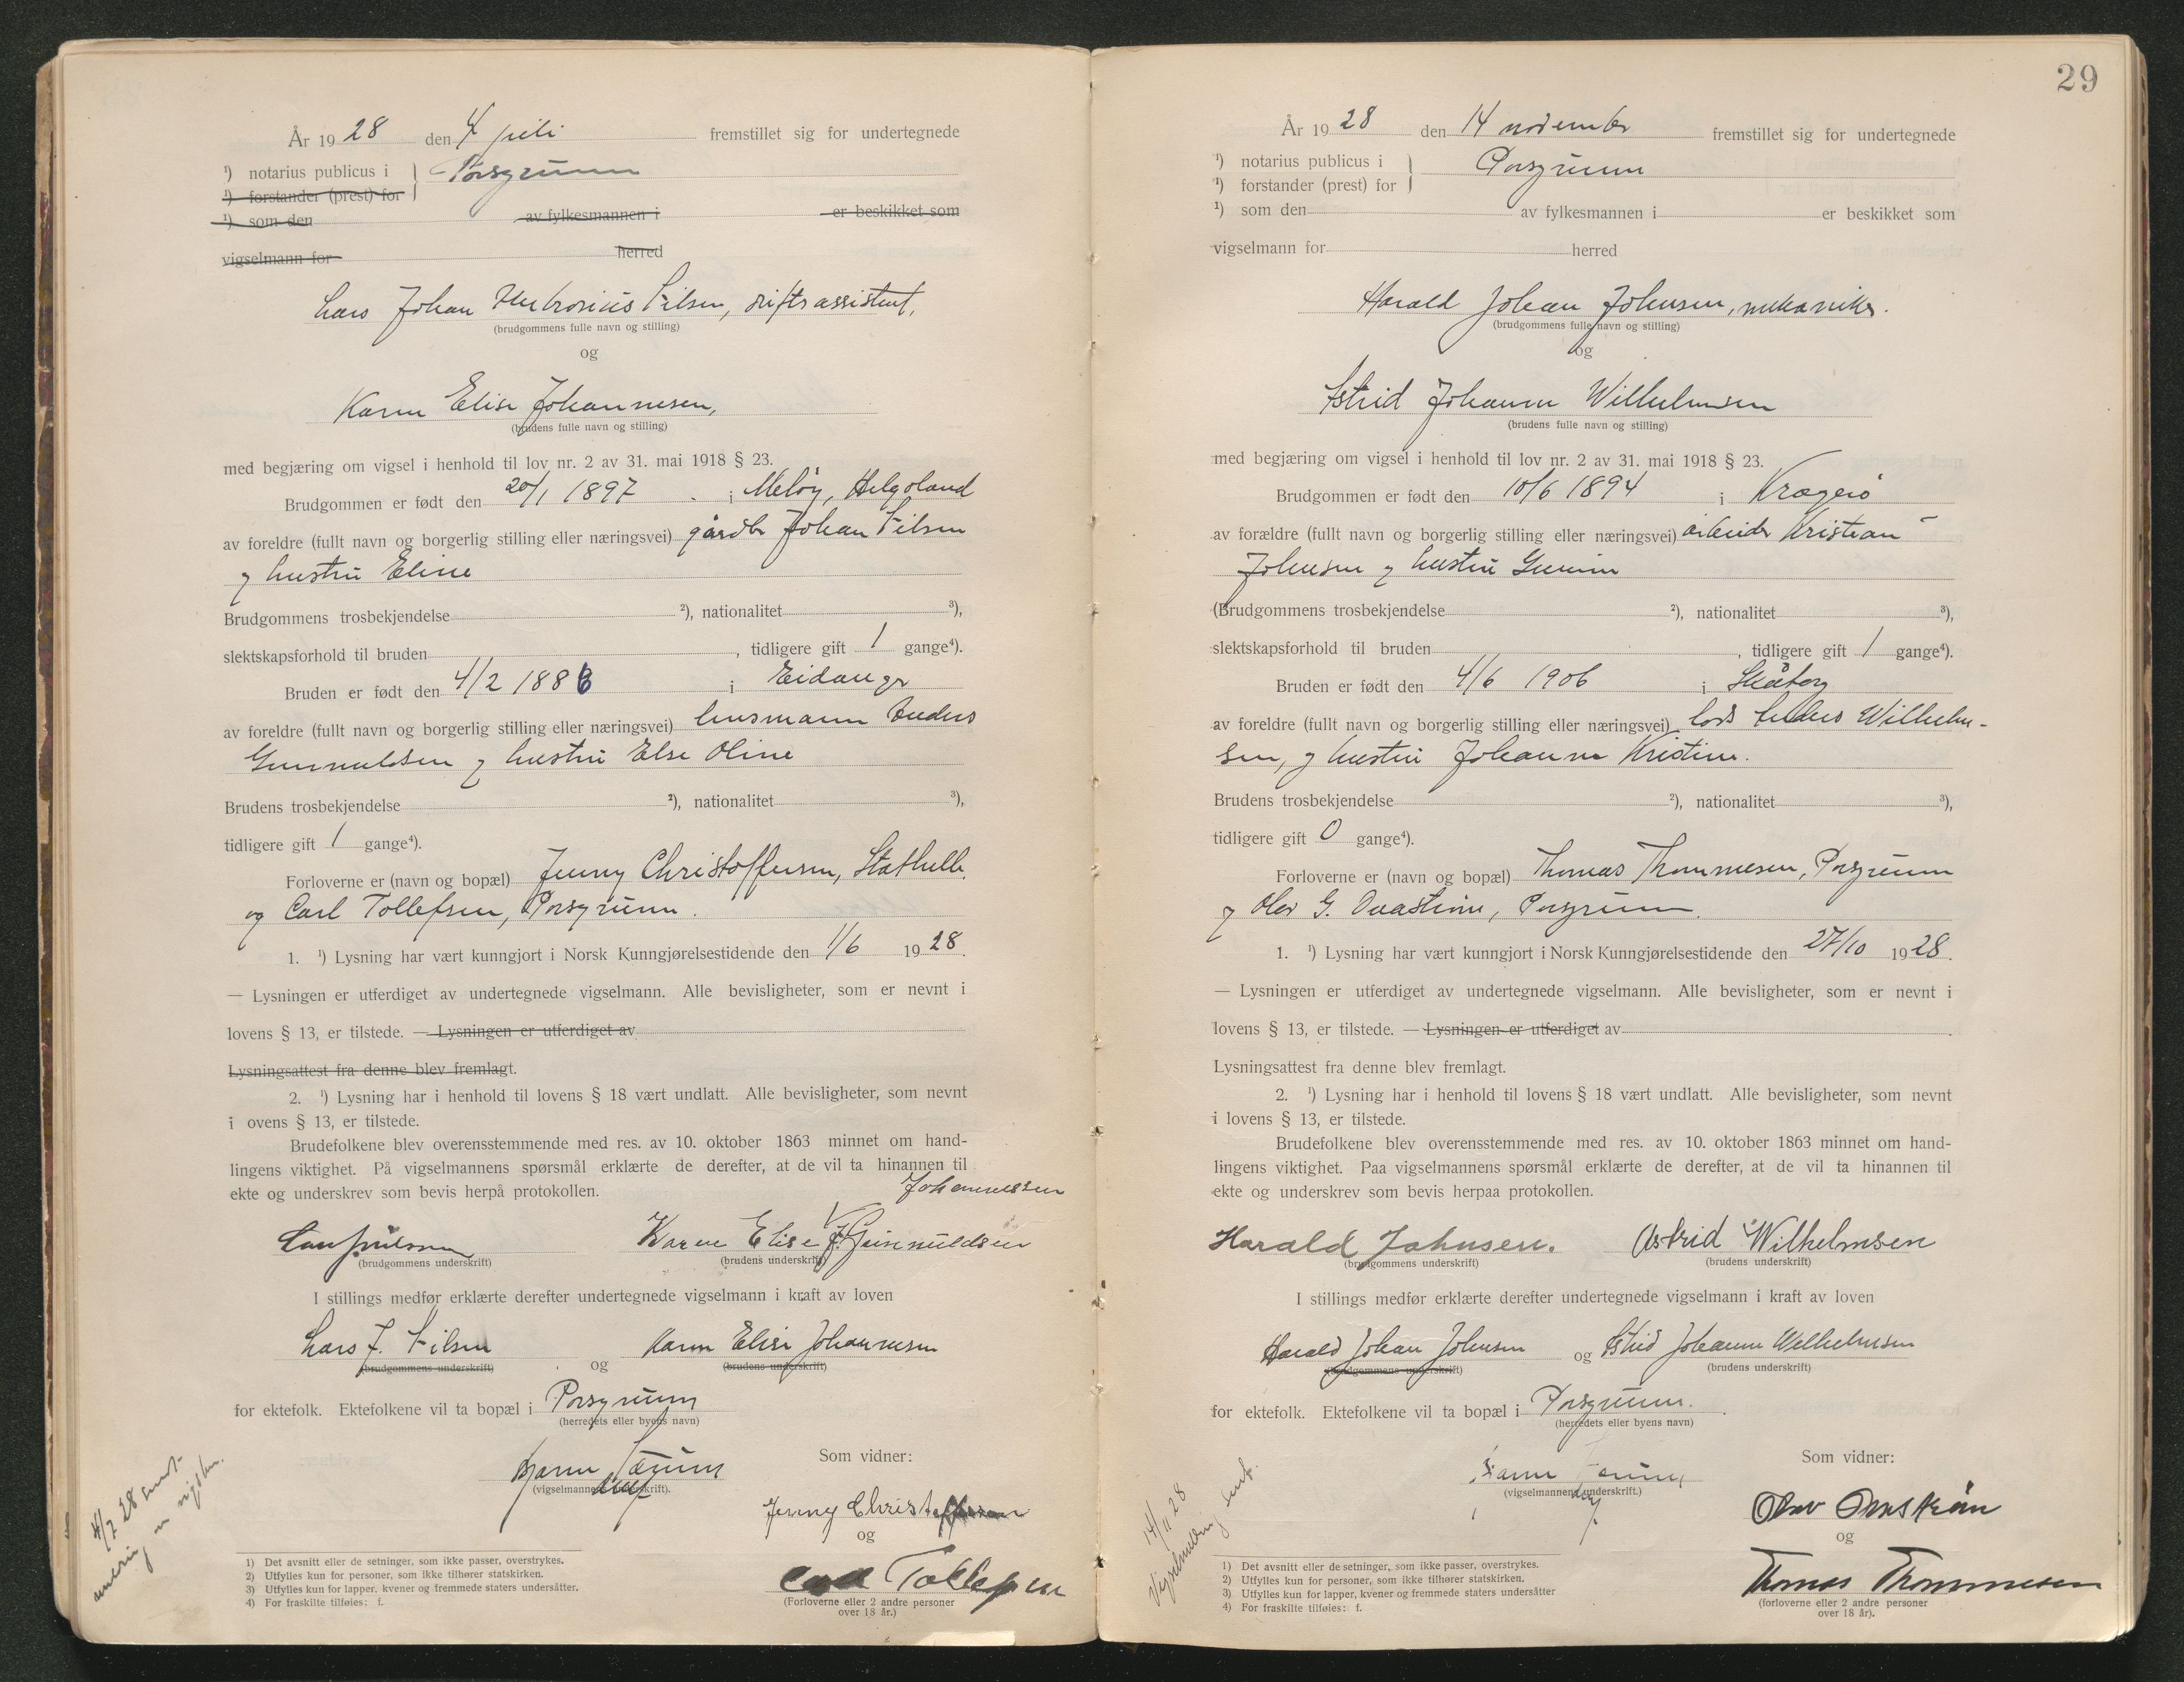 År 1928 den 4 juli fremstillet sig for undertegnede
¹) notarius publicus i } Porsgrunn
¹) forstander (prest) for
¹) som den av fylkesmannen i er beskikket som
vigselmann for herred
Lars Johan Ambrosius Nilsen, driftsassistent,
(brudgommens fulle navn og stilling)
og
Karen Elise Johannesen,
(brudens fulle navn og stilling)
med begjæring om vigsel i henhold til lov nr. 2 av 31. mai 1918 § 23.
Brudgommen er født den 20/1 1897 i Meløy, Helgoland
av foreldre (fullt navn og borgerlig stilling eller næringsvei) gårdbr Johan Nilsen
og hustru Eline
Brudgommens trosbekjendelse ²), nationalitet ³),
slektskapsforhold til bruden , tidligere gift 1 gange⁴).
Bruden er født den 4/2 1886 i Eidanger
av foreldre (fullt navn og borgerlig stilling eller næringsvei) husmann Anders
Gunnuldsen og hustru Else Oline
Brudens trosbekjendelse ²), nationalitet ³),
tidligere gift 1 gange⁴).
Forloverne er (navn og bopæl) Jenny Christoffersen, Stathelle
og Carl Tollefsen, Porsgrunn.
1. ¹) Lysning har vært kunngjort i Norsk Kunngjørelsestidende den 1/6 1928.
— Lysningen er utferdiget av undertegnede vigselmann. Alle bevisligheter, som er nevnt i
lovens § 13, er tilstede. — Lysningen er utferdiget av
Lysningsattest fra denne blev fremlagt.
2. ¹) Lysning har i henhold til lovens § 18 vært undlatt. Alle bevisligheter, som nevnt
i ovens § 13, er tilstede.
Brudefolkene blev overensstemmende med res. av 10. oktober 1863 minnet om hand-
lingens viktighet. På vigselmannens spørsmål erklærte de derefter, at de vil ta hinannen til
ekte og underskrev som bevis herpå protokollen.
Johannessen
Karen Elise F. Gunnuldsen
(brudgommens underskrift) (brudens underskrift)
I stillings medfør erklærte derefter undertegnede vigselmann i kraft av loven
Lars J. Nilsen og Karen Elise Johannesen
(brudgommens underskrift) (brudens underskrift)
for ektefolk. Ektefolkene vil ta bopæl i Porsgrunn
(herredets eller byens navn)
Som vidner:
(vigselmannens underskrift).
Jenny Christoffersen
og
Carl Tollefsen
(Forloverne eller 2 andre personer
over 18 år.)
4/7 28 sendt
1) Det avsnitt eller de setninger, som ikke passer, overstrykes.
2) Utfylles kun for personer, som ikke tilhører statskirken.
3) Utfylles kun for lapper, kvener og fremmede staters undersåtter.
4) For fraskilte tilføies: f.
29
År 1928 den 14 november fremstillet sig for undertegnede
¹) notarius publicus i } Porsgrunn
¹) forstander (prest) for
¹) som den av fylkesmannen i er beskikket som
vigselmann for herred
Harald Johan Johnsen, mekaniker.
(brudgommens fulle navn og stilling)
og
Astrid Johanne Wilhelmsen
(brudens fulle navn og stilling)
med begjæring om vigsel i henhold til lov nr. 2 av 31. mai 1918 § 23.
Brudgommen er født den 10/6 1894 i Kragerø
av forældre (fullt navn og borgerlig stilling eller næringsvei) arbeider Kristian
Johnsen og hustru Gunnine
(Brudgommens trosbekjendelse ²), nationalitet ³),
slektskapsforhold til bruden , tidligere gift 1 gange⁴).
Bruden er født den 4/6 1906 i Skåtøy
av foreldre (fullt navn og borgerlig stilling eller næringsvei) los Anders Wilhelm-
sen, og hustru Johanne Kristine.
Brudens trosbekjendelse ²), nationalitet ³),
tidligere gift 0 gange⁴).
Forloverne er (navn og bopæl) Thomas Thommesen, Porsgrunn
og Olav G. Porsgrunn.
1. ¹) Lysning har vært kunngjort i Norsk Kunngjørelsestidende den 27/10 1928.
— Lysningen er utferdiget av undertegnede vigselmann. Alle bevisligheter, som er nevnt i
lovens § 13, er tilstede. — Lysningen er utferdiget av
Lysningsattest fra denne blev fremlagt.
2. ¹) Lysning har i henhold til lovens § 18 vært undlatt. Alle bevisligheter, som nevnt
i lovens § 13, er tilstede.
Brudefolkene blev overensstemmende med res. av 10. oktober 1863 minnet om hand-
lingens viktighet. Paa vigselmannens spørsmål erklærte de derefter, at de vil ta hinannen til
ekte og underskrev som bevis herpaa protokollen.
Harald Johnsen. Astrid Wilhelmsen
(brudgommens underskrift) (brudens underskrift)
I stillings medfør erklærte derefter undertegnede vigselmann i kraft av loven
Harald Johan Johnsen og Astrid Johanne Wilhelmsen
(brudgommens underskrift) (brudens underskrift)
for ektefolk. Ektefolkene vil ta bopæl i Porsgrunn.
(herredets eller byens navn)
Som vidner:
(vigselmannens underskrift.)
Olav
og
Thomas Thommesen
(forloverne eller 2 andre personer
over 18 år).
14/11 28
Vigselmelding sendt.
1) Det avsnitt eller de setninger, som ikke passer, overstrykes.
2) Utfylles kun for personer, som ikke tilhører statskirken.
3) Utfylles kun for lapper, kvener og fremmede staters undersåtter
4) For fraskilte tilføies: f.